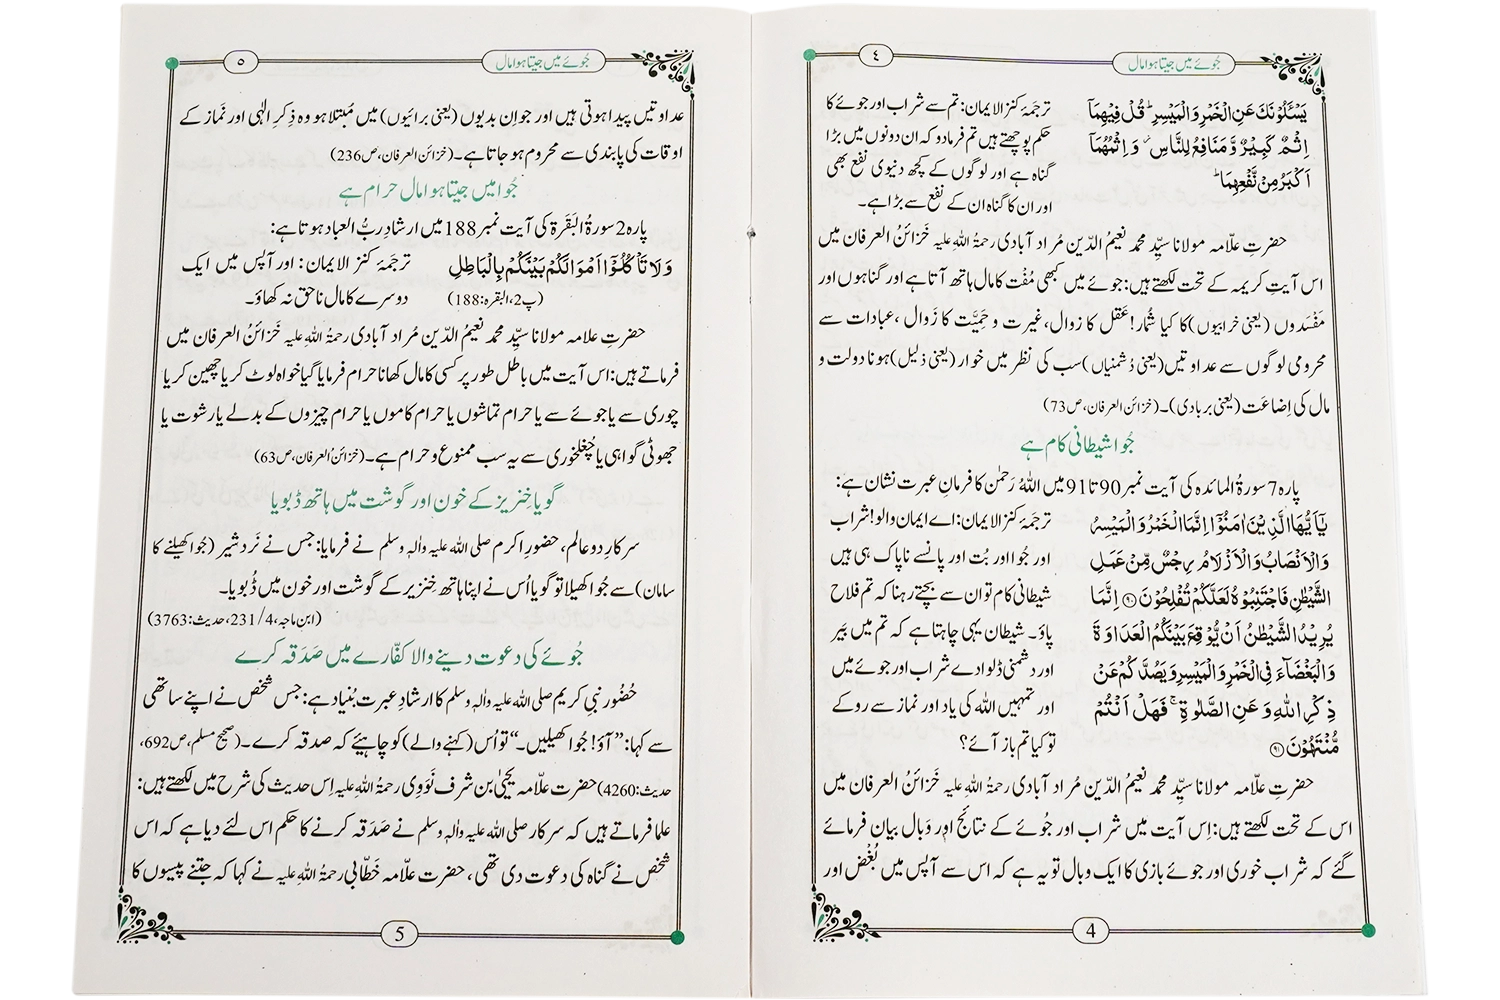 جُوئے میں جیتا ہوا مال
٤
یَسْـَٔلُوْنَكَ عَنِ الْخَمْرِ وَ الْمَیْسِرِؕ قُلْ فِیْهِمَاۤ
اِثْمٌ كَبِیْرٌ وَّ مَنَافِعُ لِلنَّاسِ٘ وَ اِثْمُهُمَاۤ
اَكْبَرُ مِنْ نَّفْعِهِمَاؕ
ترجَمۂ کنز الایمان: تم سے شراب اور جوئے کا
حکم پوچھتے ہیں تم فرمادو کہ ان دونوں میں بڑا
گناہ ہے اور لوگوں کے کچھ دنیوی نفع بھی
اور ان کا گناہ ان کے نفع سے بڑا ہے۔
حضرتِ علّامہ مولانا سیِّد محمد نعیمُ الدّین مُراد آبادی رحمۃُ اللہِ علیہ خَزائنُ العرفان میں
اس آیتِ کریمہ کے تحت لکھتے ہیں: جوئے میں کبھی مُفْت کا مال ہاتھ آتا ہے اور گناہوں اور
مَفْسَدوں (یعنی خرابیوں) کا کیا شُمار! عَقل کا زوال، غیرت و حَمِیَّت کا زَوال ،عبادات سے
محرومی لوگوں سے عداوتیں (یعنی دُشمنیاں) سب کی نظر میں خوار (یعنی ذلیل) ہونا دولت و
مال کی اِضاعَت (یعنی بربادی)۔ (خزائن العرفان، ص73)
جُوا شیطانی کام ہے
پارہ 7 سورۃُ المائدہ کی آیت نمبر 90 تا 91 میں اللہُ رَحمٰن کا فرمانِ عبرت نشان ہے:
یٰۤاَیُّهَا الَّذِیْنَ اٰمَنُوْۤا اِنَّمَا الْخَمْرُ وَ الْمَیْسِرُ
وَ الْاَنْصَابُ وَ الْاَزْلَامُ رِجْسٌ مِّنْ عَمَلِ
الشَّیْطٰنِ فَاجْتَنِبُوْهُ لَعَلَّكُمْ تُفْلِحُوْنَ۝۹۰ اِنَّمَا
یُرِیْدُ الشَّیْطٰنُ اَنْ یُّوْقِعَ بَیْنَكُمُ الْعَدَاوَةَ
وَ الْبَغْضَآءَ فِی الْخَمْرِ وَ الْمَیْسِرِ وَ یَصُدَّكُمْ عَنْ
ذِكْرِ اللّٰهِ وَ عَنِ الصَّلٰوةِۚ فَهَلْ اَنْتُمْ
مُّنْتَهُوْنَ۝۹۱
ترجَمۂ کنز الایمان: اے ایمان والو! شراب
اور جُوا اور بُت اور پانسے ناپاک ہی ہیں
شیطانی کام تو ان سے بچتے رہنا کہ تم فلاح
پاؤ۔ شیطان یہی چاہتا ہے کہ تم میں بَیر
اور دشمنی ڈلوا دے شراب اور جوئے میں
اور تمہیں اللہ کی یاد اور نماز سے روکے
تو کیا تم باز آئے؟
حضرتِ علّامہ مولانا سیِّد محمد نعیمُ الدّین مُراد آبادی رحمۃُ اللہِ علیہ خَزائنُ العرفان میں
اس کے تحت لکھتے ہیں: اِس آیت میں شراب اور جُوئے کے نتائج اور وَبال بیان فرمائے
گئے کہ شراب خوری اور جوئے بازی کا ایک وبال تو یہ ہے کہ اس سے آپس میں بُغْض اور
4
جُوئے میں جیتا ہوا مال
٥
عداوتیں پیدا ہوتی ہیں اور جو اِن بدیوں (یعنی برائیوں) میں مُبتلا ہو وہ ذِکرِ الٰہی اور نَماز کے
اوقات کی پابندی سے محروم ہو جاتا ہے۔ (خزائن العرفان، ص236)
جُوا میں جیتا ہوا مال حرام ہے
پارہ 2 سورۃُ البَقَرۃ کی آیت نمبر 188 میں ارشادِ ربُّ العباد ہوتا ہے:
وَ لَا تَاْكُلُوْۤا اَمْوَالَكُمْ بَیْنَكُمْ بِالْبَاطِلِ
(پ2، البقرہ: 188)
ترجَمۂ کنز الایمان: اور آپس میں ایک
دوسرے کا مال ناحق نہ کھاؤ۔
حضرتِ علامہ مولانا سیِّد محمد نعیمُ الدّین مُراد آبادی رحمۃُ اللہِ علیہ خَزائنُ العرفان میں
فرماتے ہیں: اس آیت میں باطل طور پر کسی کا مال کھانا حرام فرمایا گیا خواہ لوٹ کر یا چھین کر یا
چوری سے یا جوئے سے یا حرام تماشوں یا حرام کاموں یا حرام چیزوں کے بدلے یا رشوت یا
جھوٹی گواہی یا چُغلخوری سے یہ سب ممنوع و حرام ہے۔ (خزائنُ العرفان، ص63)
گویا خنزیز کے خون اور گوشت میں ہاتھ ڈبویا
سرکارِ دو عالم، حضورِ اکرم صلی اللہ علیہ والہٖ وسلم نے فرمایا: جس نے نَردشیر (جُوا کھیلنے کا
سامان) سے جُوا کھیلا تو گویا اُس نے اپنا ہاتھ خِنزیر کے گوشت اور خون میں ڈُبویا۔
(ابن ماجہ، 231/4، حدیث: 3763)
جُوئے کی دعوت دینے والا کفّارے میں صَدَقہ کرے
حُضُور نبیِ کریم صلی اللہ علیہ والہٖ وسلم کا ارشادِ عبرت بُنیاد ہے: جس شخص نے اپنے ساتھی
سے کہا: ”آؤ! جُوا کھیلیں۔“ تو اُس (کہنے والے) کو چاہیئے کہ صدقہ کرے۔ (صحیح مسلم، ص692،
حدیث: 4260) حضرت علّامہ یحییٰ بن شرف نَوَوِی رحمۃُ اللہِ علیہ اِس حدیث کی شرح میں لکھتے ہیں:
علما فرماتے ہیں کہ سرکار صلی اللہ علیہ والہٖ وسلم نے صَدَقہ کرنے کا حکم اس لئے دیا ہے کہ اس
شخص نے گناہ کی دعوت دی تھی، حضرت علّامہ خطّابی رحمۃُ اللہِ علیہ نے کہا کہ جتنے پیسوں کا
5